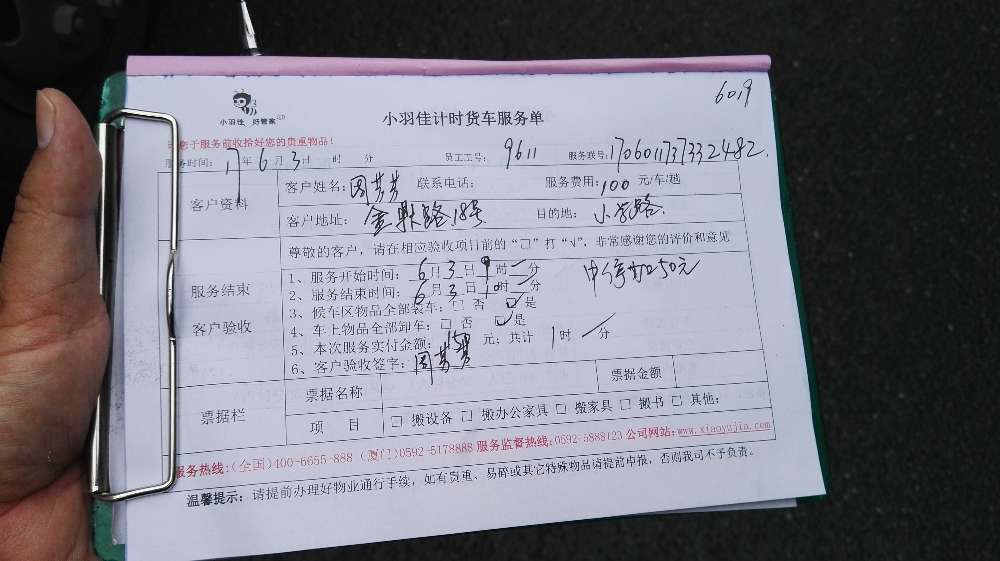 6019
小羽佳 好管家
小羽佳计时货车服务单
请您于服务前收拾好您的贵重物品!
服务时间: 17年6月3日 时 分 员工工号: 9611 服务联号: 1706011737332482.
客户资料
客户姓名: 周芬芬 联系电话: 服务费用: 100 元/车/趟
客户地址: 金鼎路18号 目的地: 小学路.
服务结束
客户验收
尊敬的客户, 请在相应验收项目前的“□”打“√”, 非常感谢您的评价和意见
1、服务开始时间: 6月3日9时一分 中停加50元
2、服务结束时间: 6月3日10时一分
3、候车区物品全部装车: □ 否 ☑是
4、车上物品全部卸车: □ 否 ☑是
5、本次服务实付金额: 150 元; 共计 1时一分
6、客户验收签字: 周芬芬
票据栏
票据名称 票据金额
项 目 □ 搬设备 □ 搬办公家具 □ 搬家具 □ 搬书 □ 其他:
服务热线:(全国)400-6655-888 (厦门)0592-5178888 服务监督热线:0592-5888123 公司网站:www.xiaoyujia.com
温馨提示: 请提前办理好物业通行手续, 如有贵重、易碎或其它特殊物品请提前申报, 否则我司不予负责。